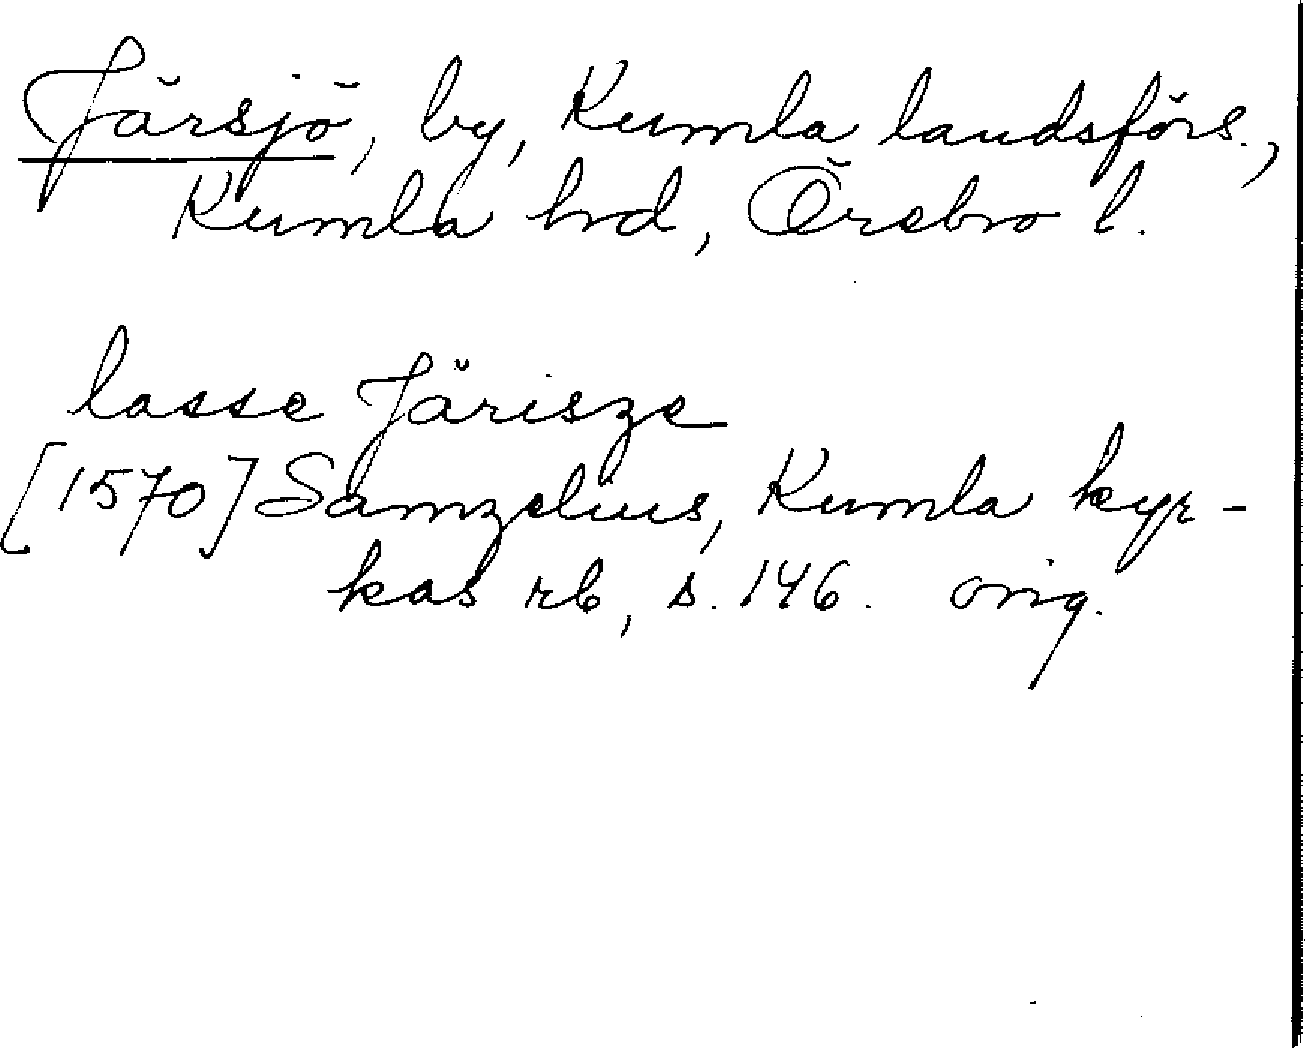 Järsjö, by, Kumla landsförs.,
Kumla hd, Örebro l.
lasse Järisze
[1570] Samzelius, Kumla kyr-
kas rb, s. 146. orig.